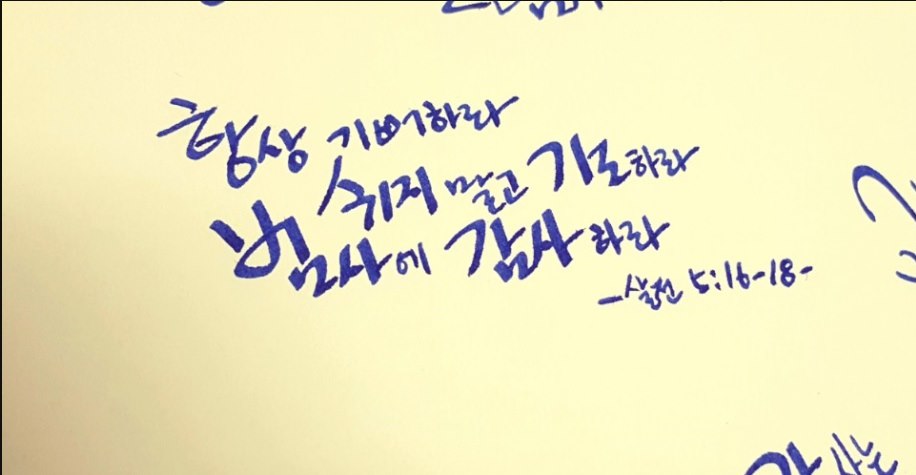 항상 기뻐하라
쉬지 말고 기도하라
범사에 감사하라
-살전 5:16-18-